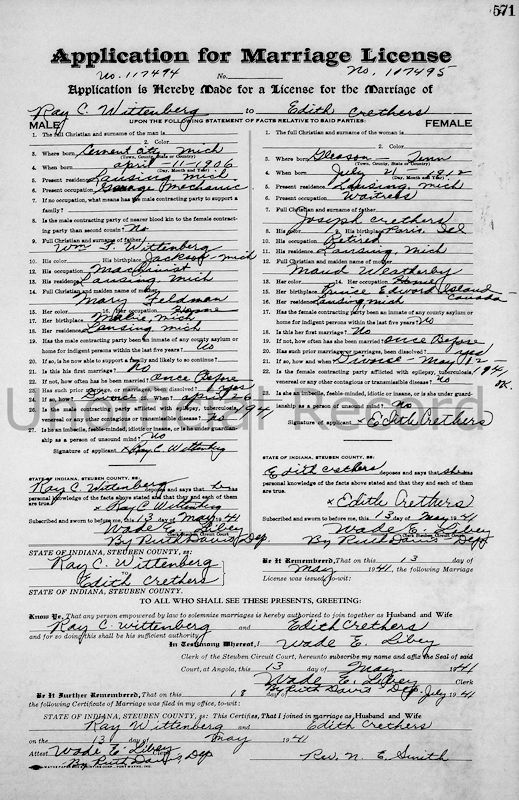 571
Application for Marriage License
No. 117494 No. No. 117495
Application is Hereby Made for a License for the Marriage of
Ray C. Wittenberg to Edith Crethers
UPON THE FOLLOWING STATEMENT OF FACTS RELATIVE TO SAID PARTIES:
MALE
1. The full Christian and surname of the man is
2. Color
3. Where born Cement City, Mich
(Town, County, State or Country)
4. When born April - 11 - 1906
(Day, Month and Year)
5. Present residence Lansing Mich
6. Present occupation Garage Mechanic
7. If no occupation, what means has the male contracting party to support a
family?
8. Is the male contracting party of nearer blood kin to the female contract-
ing party than second cousin? No
9. Full Christian and surname of father
Wm Wittenberg
10. His color His birthplace Jackson, Mich
12. His occupation Machinist
13. His residence Lansing Mich
14. Full Christian and maiden name of mother
Mary Feldman
15. Her color 16. Her occupation Home
17. Her birthplace Mich
18. Her residence Lansing Mich
19. Has the male contracting party been an inmate of any county asylum or
home for indigent persons within the last five years? No
20. If so, is he now able to support a family and likely to so continue?
21. Is this his first marriage? No
22. If not, how often has he been married? Once Before
23. Has such prior marriage, or marriages, been dissolved? yes
24. If so, how and when? Divorce April 26
1941
25. Is the male contracting party afflicted with epilepsy, tuberculosis,
venereal or any other contagious or transmissible disease? no
27. Is he an imbecile, feeble-minded, idiotic or insane, or is he under guardian-
ship as a person of unsound mind? No
Signature of applicant x Ray C. Wittenberg
STATE OF INDIANA, STEUBEN COUNTY, ss:
Ray C. Wittenberg deposes and says that he
personal knowledge of the facts above stated and that they and each of them
are true.
x Ray C Wittenberg
Subscribed and sworn to before me, this 13 day of May 1941
Wade E. Libey
Clerk Steuben Circuit Court
By Ruth Davis, Dep
FEMALE
1. The full Christian and surname of the woman is
2. Color
3. Where born Gleason Tenn
(Town, County, State or Country)
4. When born July 21 - 1912
(Day, Month and Year)
5. Present residence Lansing, Mich
6. Present occupation Waitress
7. Full Christian and surname of father
Joseph Crethers
8. His color 9. His birthplace Paris, Ill
10. His occupation Retired
11. His residence Lansing, Mich
12. Full Christian and maiden name of mother
Maud Weatherby
13. Her color 14. Her occupation Home
15. Her birthplace Prince Edward Island
Canada
16. Her residence Lansing Mich
17. Has the female contracting party been an inmate of any county asylum or
home for indigent persons within the last five years? No
18. Is this her first marriage? No
19. If not, how often has she been married? Once Before
20. Has such prior marriage, or marriages, been dissolved? yes
21. If so, how and when? Divorce - May 12
1941
22. Is the female contracting party afflicted with epilepsy, tuberculosis,
venereal or any other contagious or transmissible disease? no
23. Is she an imbecile, feeble-minded, idiotic or insane, or is she under guardian-
ship as a person of unsound mind? No
Signature of applicant x Edith Crethers
STATE OF INDIANA, STEUBEN COUNTY, ss:
Edith Crethers deposes and says that she has
personal knowledge of the facts above stated and that they and each of them
are true.
x Edith Crethers
Subscribed and sworn to before me, this 13 day of May 1941
Wade E. Libey
Clerk Steuben Circuit Court
By Ruth Davis Dep
Unofficial Record
STATE OF INDIANA, STEUBEN COUNTY, ss:
Ray C. Wittenberg
Edith Crethers
STATE OF INDIANA, STEUBEN COUNTY, ss:
Be It Remembered, That on this 13 day of
May 1941, the following Marriage
License was issued, to-wit:
TO ALL WHO SHALL SEE THESE PRESENTS, GREETING:
Know Ye, That any person empowered by law to solemnize marriages is hereby authorized to join together as Husband and Wife
Ray C Wittenberg and Edith Crethers
and for so doing this shall be his sufficient authority.
In Testimony Whereof, I Wade E. Libey
Clerk of the Steuben Circuit Court, hereunto subscribe my name and affix the Seal of said
Court, at Angola, this 13 day of May 1941
Wade E. Libey Clerk
By Ruth Davis Dep
Be It Further Remembered, That on this 18 day of July 1941
the following Certificate of Marriage was filed in my office, to-wit:
STATE OF INDIANA, STEUBEN COUNTY, ss: This Certifies, That I joined in marriage as Husband and Wife
Ray Wittenberg and Edith Crethers
on the 13 day of May 1941
Attest Wade E. Libey Clerk
By Ruth Davis, Dep
Rev. N. E. Smith